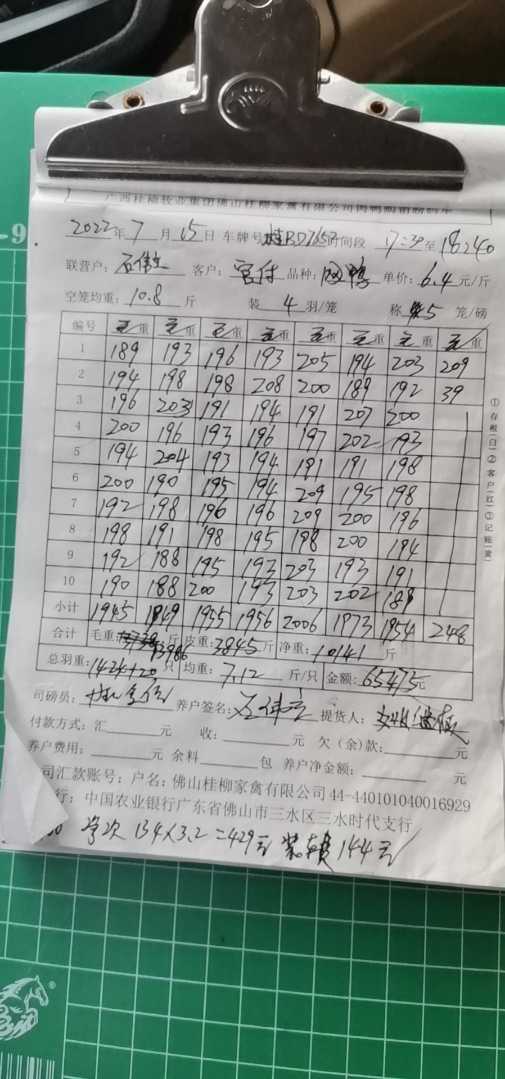 2022年7月15日 车牌号 时间段 17:30至18:40
联营户: 客户: 品种: 鸭 单价:6.4元/斤
空笼均重:10.8斤 装4羽/笼 称5笼/磅
编号 毛重 毛重 毛重 毛重 毛重 毛重 毛重 毛重
1 189 193 196 193 205 194 203 209
2 194 198 198 208 200 189 192 39
3 196 203 191 194 191 207 200
4 200 196 193 196 197 202 193
5 194 204 193 194 191 191 198
6 200 190 195 194 209 195 198
7 192 198 196 196 209 200 196
8 198 191 198 195 198 200 194
9 192 188 195 193 203 193 191
10 190 188 200 193 203 202 189
小计 1945 1949 1955 1956 2006 1973 1954 248
合计 毛重:13986斤 皮重:3845斤 净重:10141斤
总羽重:1424+20只 均重:7.12斤/只 金额:65475元
司磅员: 养户签名: 提货人:
付款方式:汇 元 收: 元 欠(余)款: 元
养户费用: 元 余料 包 养户净金额: 元
司汇款账号:户名:佛山桂柳家禽有限公司44-440101040016929
行:中国农业银行广东省佛山市三水区三水时代支行
134×3.2=429元 装车费144元
①存根(白)②客户(红)③记账(黄)
-9